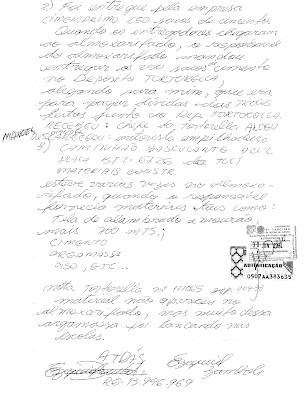 2) Foi entregue pela empresa
CINEMPRIMO 250 sacos de cimento.
Quando os entregadores chegaram
ao almoxarifado, o responsável
do almoxarifado mandou
entregar os 250 sacos cimento
no Deposito TORTORELLA,
alegando para mim, que era
para pagar dividas das trocas
feitas junto ao Dep. TORTORELLA.
RECEBEU: Chefe do Tortorella
MANOEL
DESCARREGOU: máquina empilhadeira
3) CAMINHÃO BASCULANTE AZUL
PLACA BTT-6726 da TUCÍ
MATERIAIS CONSTR.
esteve varias vezes no almoxa-
rifado, quando o responsável
fornecia materiais tais como:
Tela de alambrado e mourão,
mais 700 MTS.;
CIMENTO
ARGAMASSA
PISO, ETC...
AUTENTICAÇÃO
0507AA343635
nota Tortorella nº
material não apareceu no
almoxarifado, nas muito dessa
argamassa foi lançado nas
escolas.
ATRÁS
Ezequiel
Zamboli
RG-13.996.969